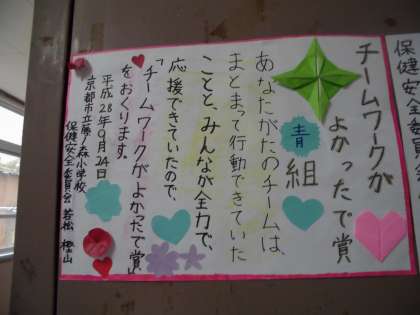 チームワークが
よかったで賞
青組
あなたがたのチームは、
まとまって行動できていた
ことと、みんなが全力で、
応援できていたので、
「チームワークがよかったで賞」
をおくります。
平成28年9月24日
京都市立藤ノ森小学校
保健安全委員会 若松 樫山
保健安全